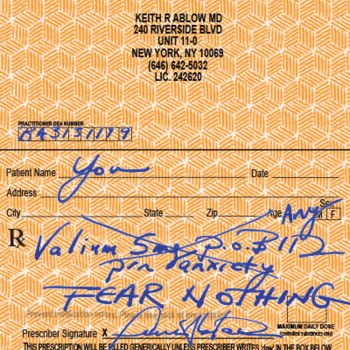 KEITH R ABLOW MD
240 RIVERSIDE BLVD
UNIT 11-0
NEW YORK, NY 10069
(646) 642-5032
LIC. 242620
PRACTITIONER DEA NUMBER
Patient Name You Date
Address
City State Zip Age Any Sex
M F
Rx Valium 5mg p.o. BID
prn anxiety
FEAR NOTHING
MAXIMUM DAILY DOSE
(controlled substances only)
Prescriber Signature X
THIS PRESCRIPTION WILL BE FILLED GENERICALLY UNLESS PRESCRIBER WRITES 'daw' IN THE BOX BELOW